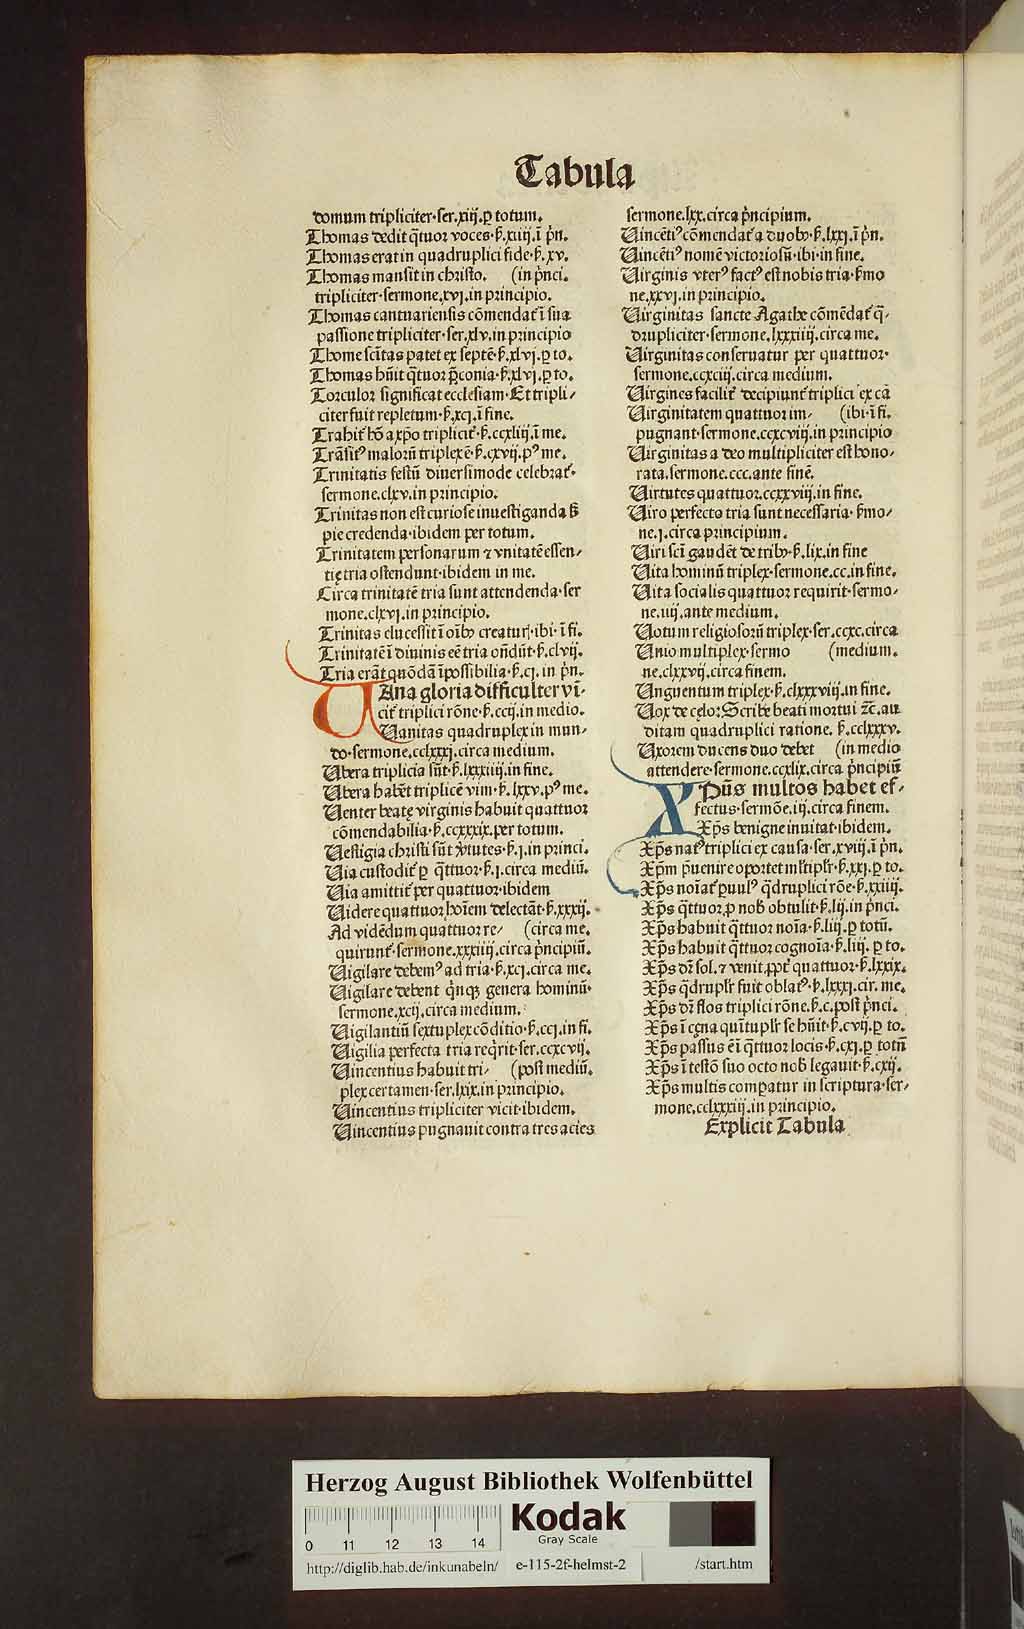 Tabula
domum tripliciter·ser.xiij.ꝑ totum.
Thomas dedit q̃tuor voces·ẜ.xiiij.ĩ pͥn.
Thomas erat in quadruplici fide·ẜ.xv.
Thomas mansit in christo. (in pͥnci.
tripliciter·sermone.xvj.in principio.
Thomas cantuariensis cõmendat᷑ ĩ sua
passione tripliciter·ser.xlv.in principio
Thome scĩtas patet ex septẽ·ẜ.xlvj.ꝑ to.
Thomas hũit q̃tuor p̃conia·ẜ.xlvj.ꝑ to.
Torculor significat ecclesiam·Et tripli/
citer fuit repletum·ẜ.xcj.ĩ fine.
Trahit᷑ hõ a xp̃o triplicit᷑·ẜ.ccxliij.ĩ me.
Trãsit᷒ malorũ triplex ẽ·ẜ.cxvij.p᷒ me.
Trinitatis festũ diuersimode celebrat᷑·
sermone.clxv.in principio.
Trinitas non est curiose inuestiganda ẜ
pie credenda·ibidem per totum.
Trinitatem personarum ⁊ vnitatẽ essen/
tię tria ostendunt·ibidem in me.
Circa trinitatẽ tria sunt attendenda·ser
mone.clxvj.in principio.
Trinitas elucessit ĩ oĩbꝫ creaturꝭ·ibi·ĩ fi.
Trinitatẽ ĩ diuinis eẽ tria oñdũt·ẜ.clvij.
Tria erãt quõdã ĩpossibilia·ẜ.cj.in pͥn.
UAna gloria difficulter vĩ·
cit᷑ triplici rõne·ẜ.ccij.in medio.
Uanitas quadruplex in mun/
do·sermone.cclxxxj.circa medium.
Ubera triplicia sũt·ẜ.lxxxiiij.in fine.
Ubera habẽt triplicẽ vim·ẜ.lxxv.p᷒ me.
Uenter beatę virginis habuit quattuor
cõmendabilia·ẜ.ccxxxix.per totum.
Uestigia christi sũt ꝟtutes·ẜ.j.in princi.
Uia custodit᷑ ꝑ q̃ttuor·ẜ.j.circa mediũ.
Uia amittit᷑ per quattuor·ibidem
Uidere quattuor hoĩem delectãt·ẜ.xxxij.
Ad vidẽdum quattuor re/ (circa me.
quirunt᷑·sermone.xxxiiij.circa pͥncipiũ.
Uigilare debem᷒ ad tria·ẜ.xcj.circa me.
Uigilare debent qͥnqꝫ genera hominũ·
sermone.xcij.circa medium.
Uigilantiũ sextuplex cõditio·ẜ.ccj.in fi.
Uigilia perfecta tria reqͥrit·ser.ccxcvij.
Uincentius habuit tri/ (post mediũ.
plex certamen·ser.lxix.in principio.
Uincentius tripliciter vicit·ibidem.
Uincentius pugnauit contra tres acies
sermone.lxx.circa pͥncipium.
Uincẽti᷒ cõmendat᷑ a duobꝫ·ẜ.lxxj.ĩ pͥn.
Uincẽti᷒ nomẽ victoriosũ·ibi·in fine.
Uirginis vter᷒ fact᷒ est nobis tria·ẜmo
ne.xxvj.in principio.
Uirginitas sancte Agathe cõmẽdat᷑ q̃·
drupliciter·sermone.lxxxiiij.circa me.
Uirginitas conseruatur per quattuor·
sermone.ccxciij.circa medium.
Uirgines facilit᷑ decipiunt᷑ triplici ex cã
Uirginitatem quattuor im/ (ibi·ĩ fi.
pugnant·sermone.ccxcviij.in principio
Uirginitas a deo multipliciter est hono·
rata.sermone.ccc.ante finẽ.
Uirtutes quattuor.ccxxviij.in fine.
Uiro perfecto tria sunt necessaria·ẜmo/
ne.j.circa principium.
Uiri scĩ gaudẽt de tribꝫ·ẜ.lix.in fine
Uita hominũ triplex·sermone.cc.in fine.
Uita socialis quattuor requirit·sermo/
ne.iiij.ante medium.
Uotum religiosorũ triplex·ser.ccxc.circa
Unio multiplex·sermo (medium.
ne.clxxvij.circa finem.
Unguentum triplex·ẜ.clxxxviij.in fine.
Uox de cęlo: Scribe beati mortui ⁊c̃.au
ditam quadruplici ratione.ẜ.cclxxxv.
Uxorem ducens duo debet (in medio
attendere·sermone.ccxlix.circa pͥncipiũ
XPũs multos habet ef/
fectus·sermõe.iij.circa finem.
Xp̃s benigne inuitat·ibidem.
Xp̃s nat᷒ triplici ex causa·ser.xviij.ĩ pͥn.
Xp̃m p̃uenire oportet ml̃tipl̃r·ẜ.xxj.ꝑ to.
Xp̃s noĩat᷑ ꝑuul᷒ q̃druplici rõe·ẜ.xxiiij.
Xp̃s q̃ttuor ꝓ nob̃ obtulit·ẜ.lij.in pͥnci.
Xp̃s habuit q̃ttuor noĩa·ẜ.liij.ꝑ totũ.
Xp̃s habuit q̃ttuor cognoĩa·ẜ.liij.ꝑ to.
Xp̃s dr̃ sol.⁊ venit ꝓpt᷑ quattuor·ẜ.lxxix.
Xp̃s q̃drupl̃r fuit oblat᷒·ẜ.lxxxj.cir.me.
Xp̃s dr̃ flos triplici rõne.ẜ.c.post pͥnci.
Xp̃s ĩ cęna quĩtupl̃r se hũit·ẜ.cvij.ꝑ to.
Xp̃s passus ẽ ĩ q̃ttuor locis·ẜ.cxj.ꝑ totũ
Xp̃s ĩ testõ suo octo nob̃ legauit·ẜ.cxij.
Xp̃s multis compatur in scriptura·ser/
mone.cclxxxiij.in principio.
Explicit Tabula
Herzog August Bibliothek Wolfenbüttel
Kodak
Gray Scale
0 11 12 13 14
http://diglib.hab.de/inkunabeln/ e-115-2f-helmst-2 /start.htm